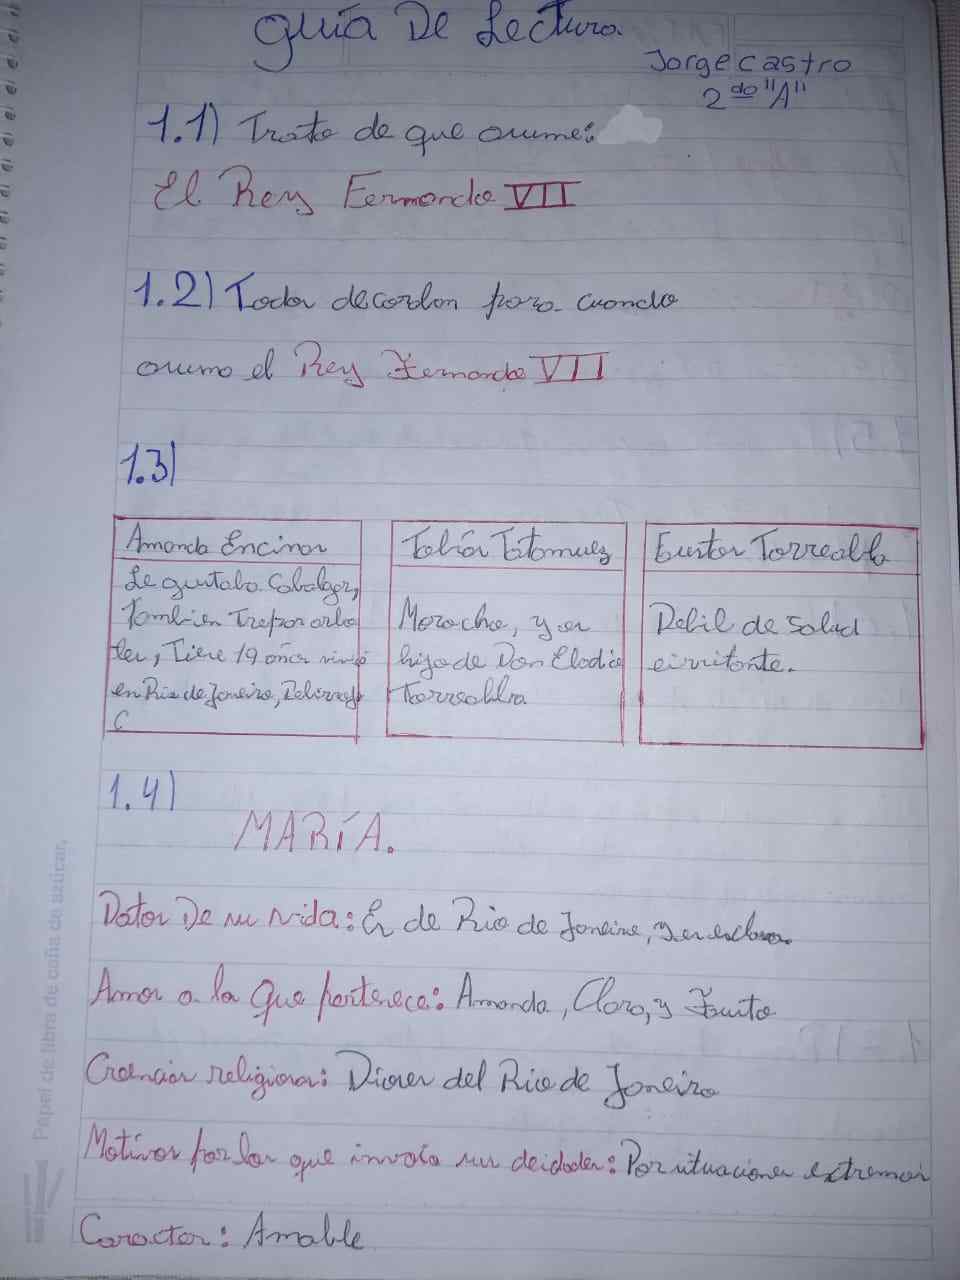 Guía De Lectura
Jorge castro
2do "A"
1.1) Trata de que asume:
El Rey Fernando VII
1.2) Todos decordon para cuando
asuma el Rey Fernando VII
1.3)
Amanda Encinas
Le gustaba Cabalgar,
Tambien Trepar arbo
les, Tiene 19 años vivió
en Rio de Janeiro,
C
Tobías
Morocho, y es
hijo de Don Elodio
Torrealba
Torrealba
Debil de Salud
e irritante.
1.4)
MARÍA.
Datos De su vida: Es de Rio de Janeiro, y es esclava.
Amos a la Que pertenece: Amanda, Clara, y Justo
Creencias religiosas: Dioses del Rio de Janeiro
Motivos por los que invoca sus deidades: Por situaciones extremas
Caracter: Amable
Papel de fibra de caña de azúcar.